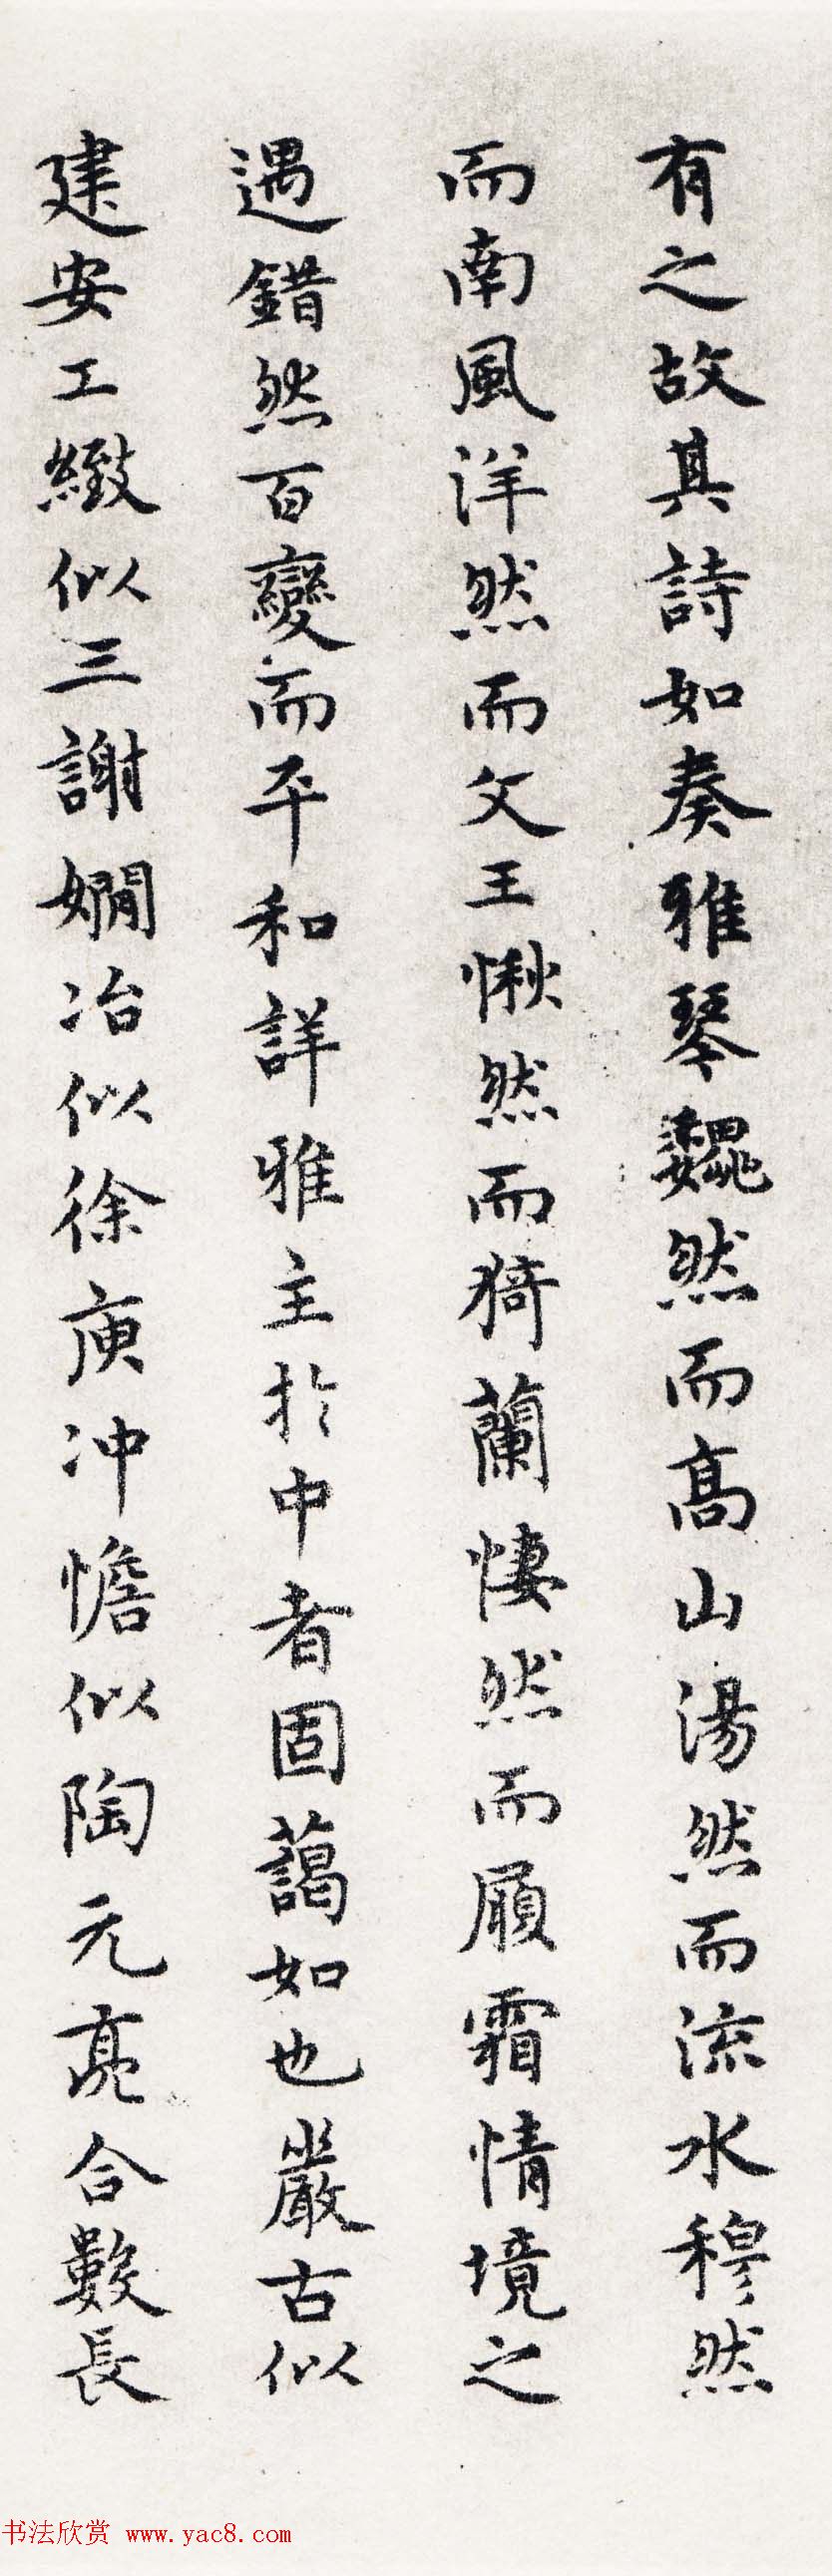 有之故其詩如奏雅琴巍然而高山湯然而流水穆然
而南風洋然而文王愀然而猗蘭悽然而履霜情境之
遇錯然百變而平和詳雅主於中者固藹如也嚴古似
建安工緻似三謝嫺冶似徐庾冲憺似陶元亮合數長
书法欣赏 www.yac8.com